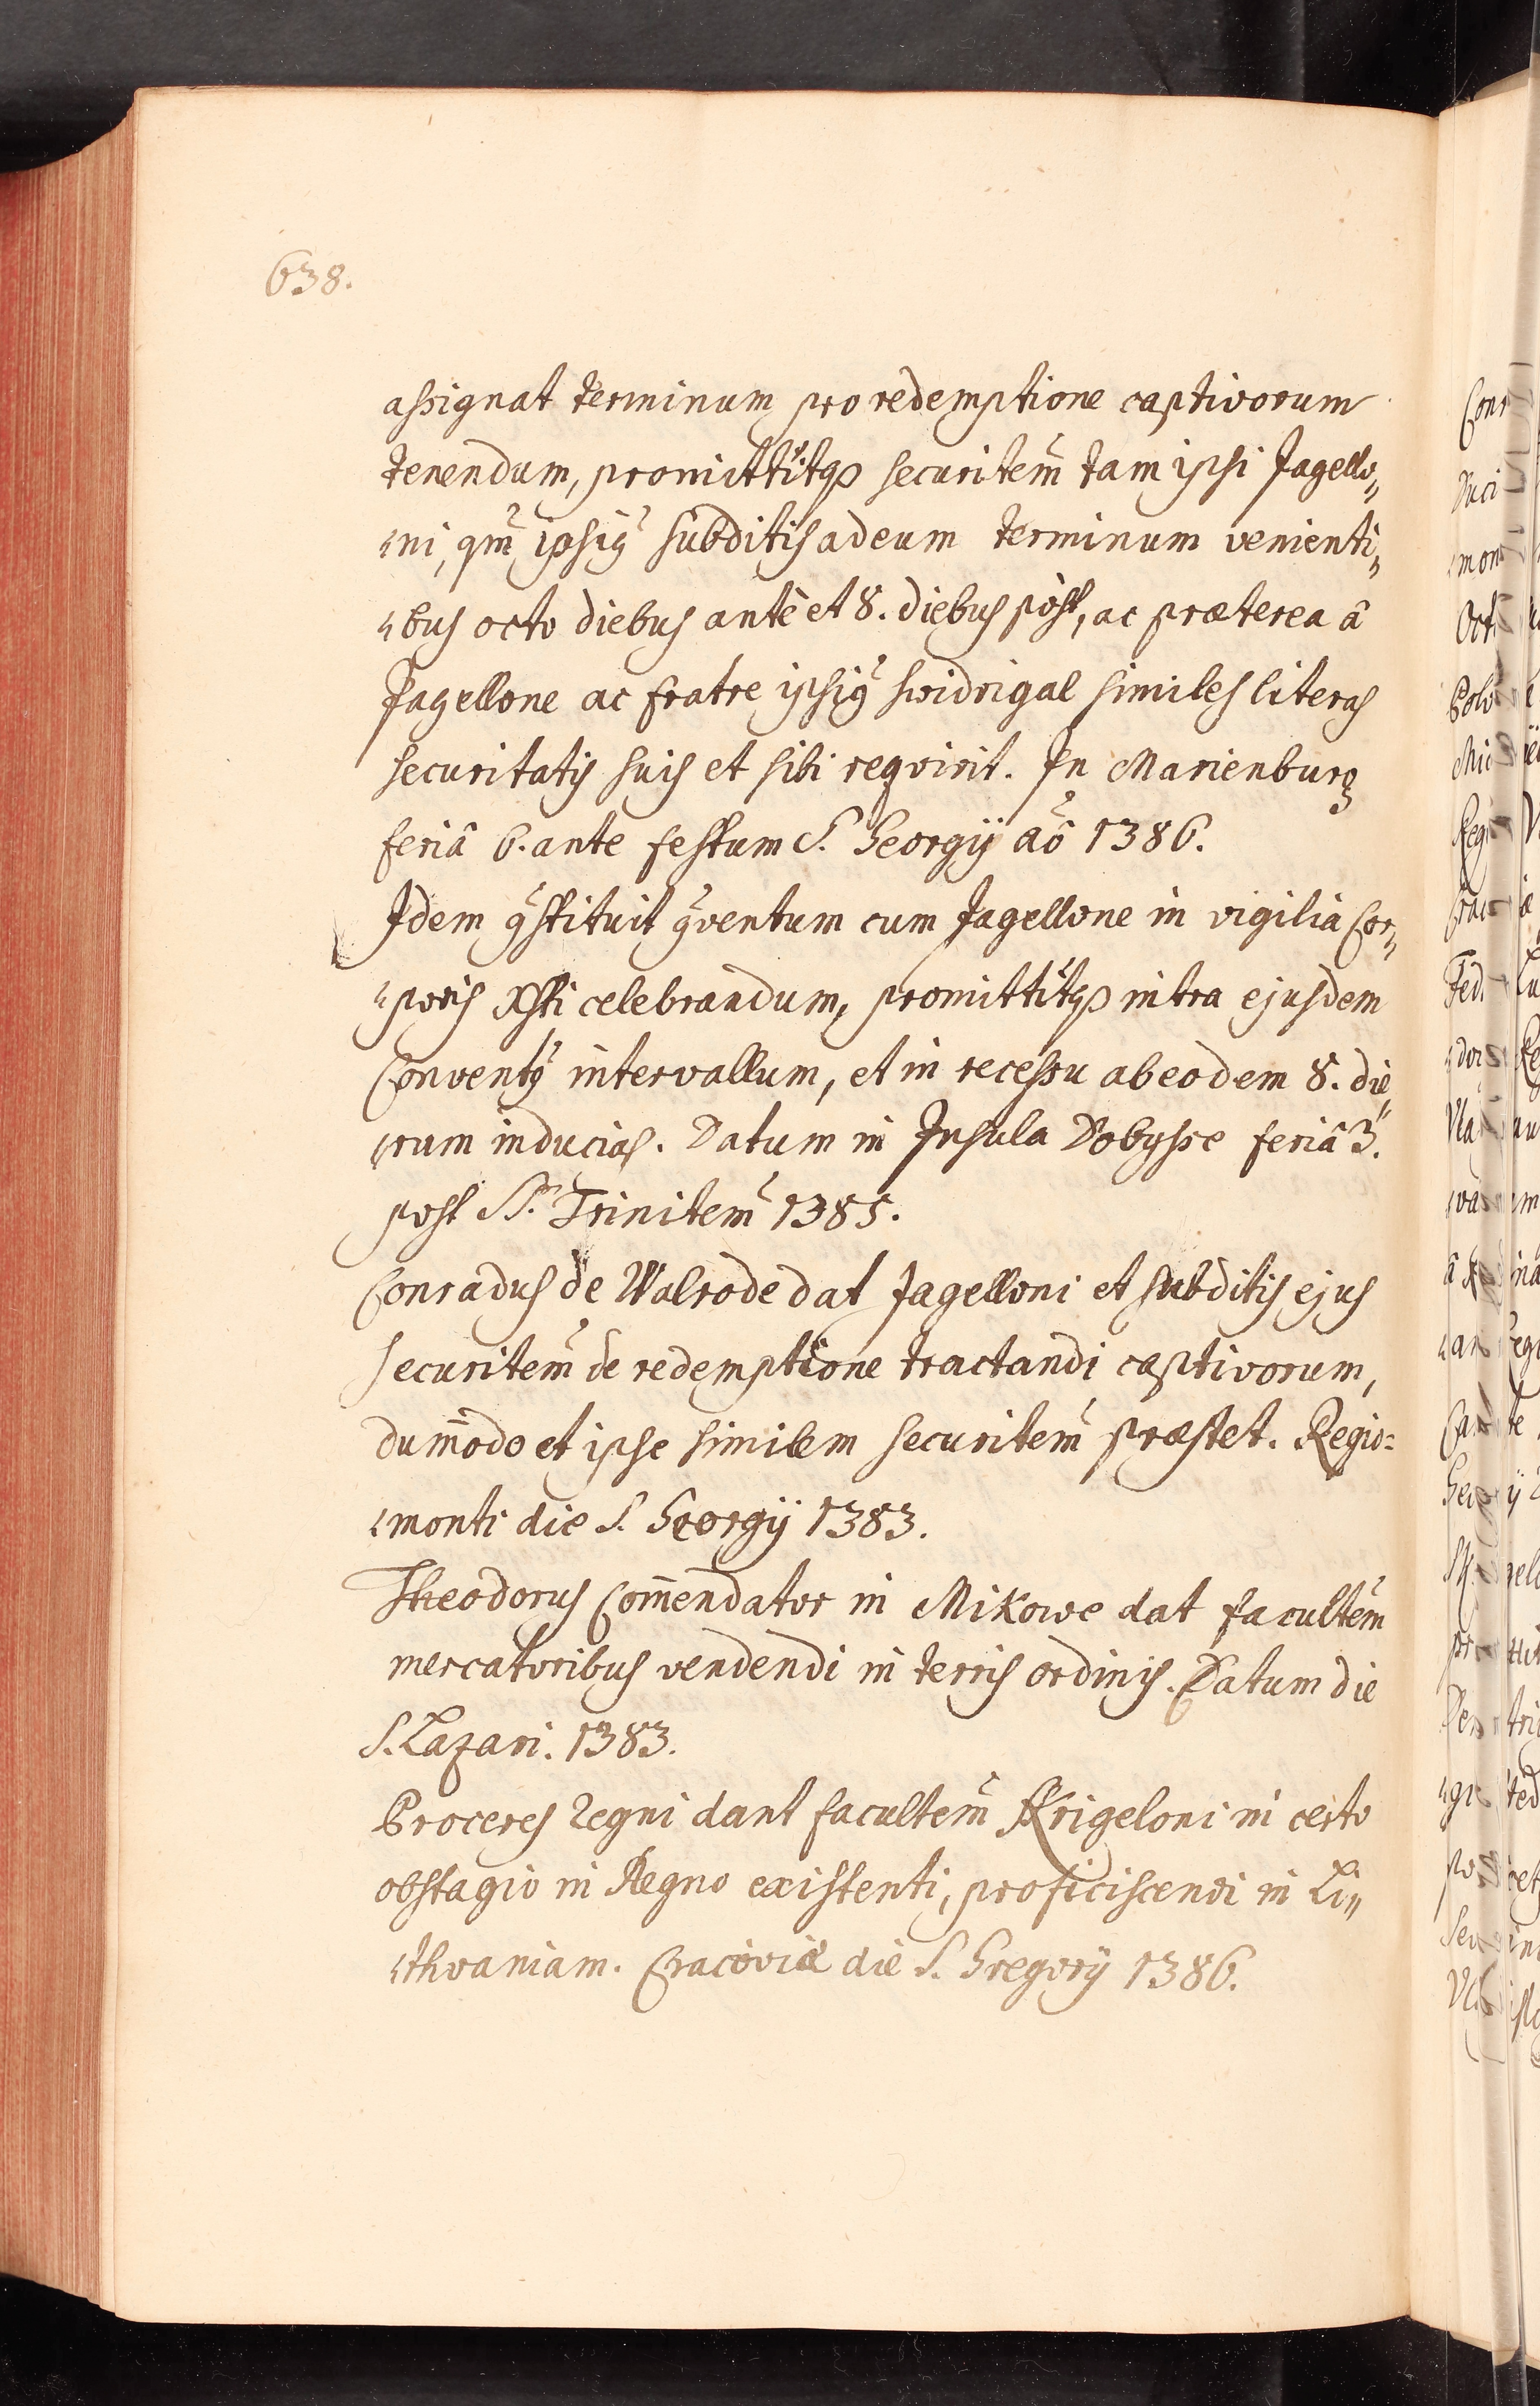 638.
assignat terminum pro redemptione captivorum
tenendum, promittitqꝫ securitem̃ tam ipsi Jagello„
„ni, qm̃ ipsiꝰ subditis ad eum terminum venienti„
„bus octo diebus antè et 8. diebus pòst, ac præterea â
Jagellone ac fratre ipsiꝰ swidrigal similes literas
securitatis suis et sibi reqvirit. In Marienburg
feriâ 6. ante festum S. Georgij aõ 1386.
Idem ꝯstituit ꝯventum cum Jagellone in vigilia Cor„
„poris Xsti celebrandum, promittitqꝫ intra ejusdem
Conventꝰ intervallum, et in recessu ab eodem 8. die„
„rum inducias. Datum in Insula Dobysse feriâ 3.
post SS. Trinitem̃ 1385.
Conradus de Walrode dat Jagelloni et subditis ejus
securitem̃ de redemptione tractandi captivorum,
dum̃odo et ipse similem securitem̃ præstet. Regio=
„monti die S. Georgij 1383.
Theodorus Com̃endator in Mikowe dat facultem̃
mercatoribus vendendi in terris ordinis. Datum die
S. Lazari. 1383.
Proceres Regni dant facultem̃ Skrigeloni in certo
obstagio in Regno existenti, proficiscendi in Li„
„thvaniam. Cracoviæ die S. Gregorij 1386.